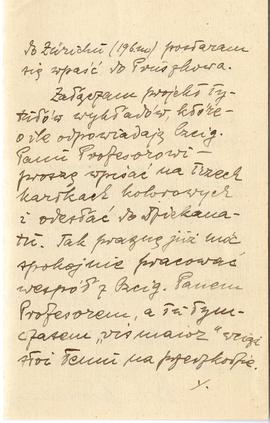 do Zürichu (196.00) postaram
się wpaść do Pruszkowa.
Załączam projekt ty-
tułów wykładów, które
o ile odpowiadają Czcig.
Panu Profesorowi –
proszę wpisać na trzech
kartkach kolorowych
i odesłać do Dziekana-
tu. Tak pragnę już móc
spokojnie pracować
wespół z Czcig. Panem
Profesorem, a tu tym-
czasem „vis maior" wciąż
stoi temu na przeszkodzie.